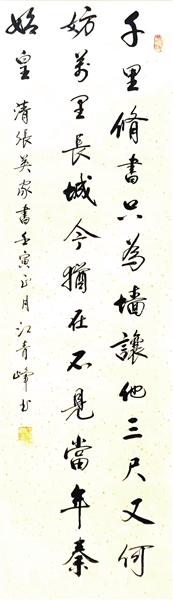 千里脩書只為墻讓他三尺又何
妨萬里長城今猶在不見當年秦
始皇 清張英家書壬寅正月江青峰书